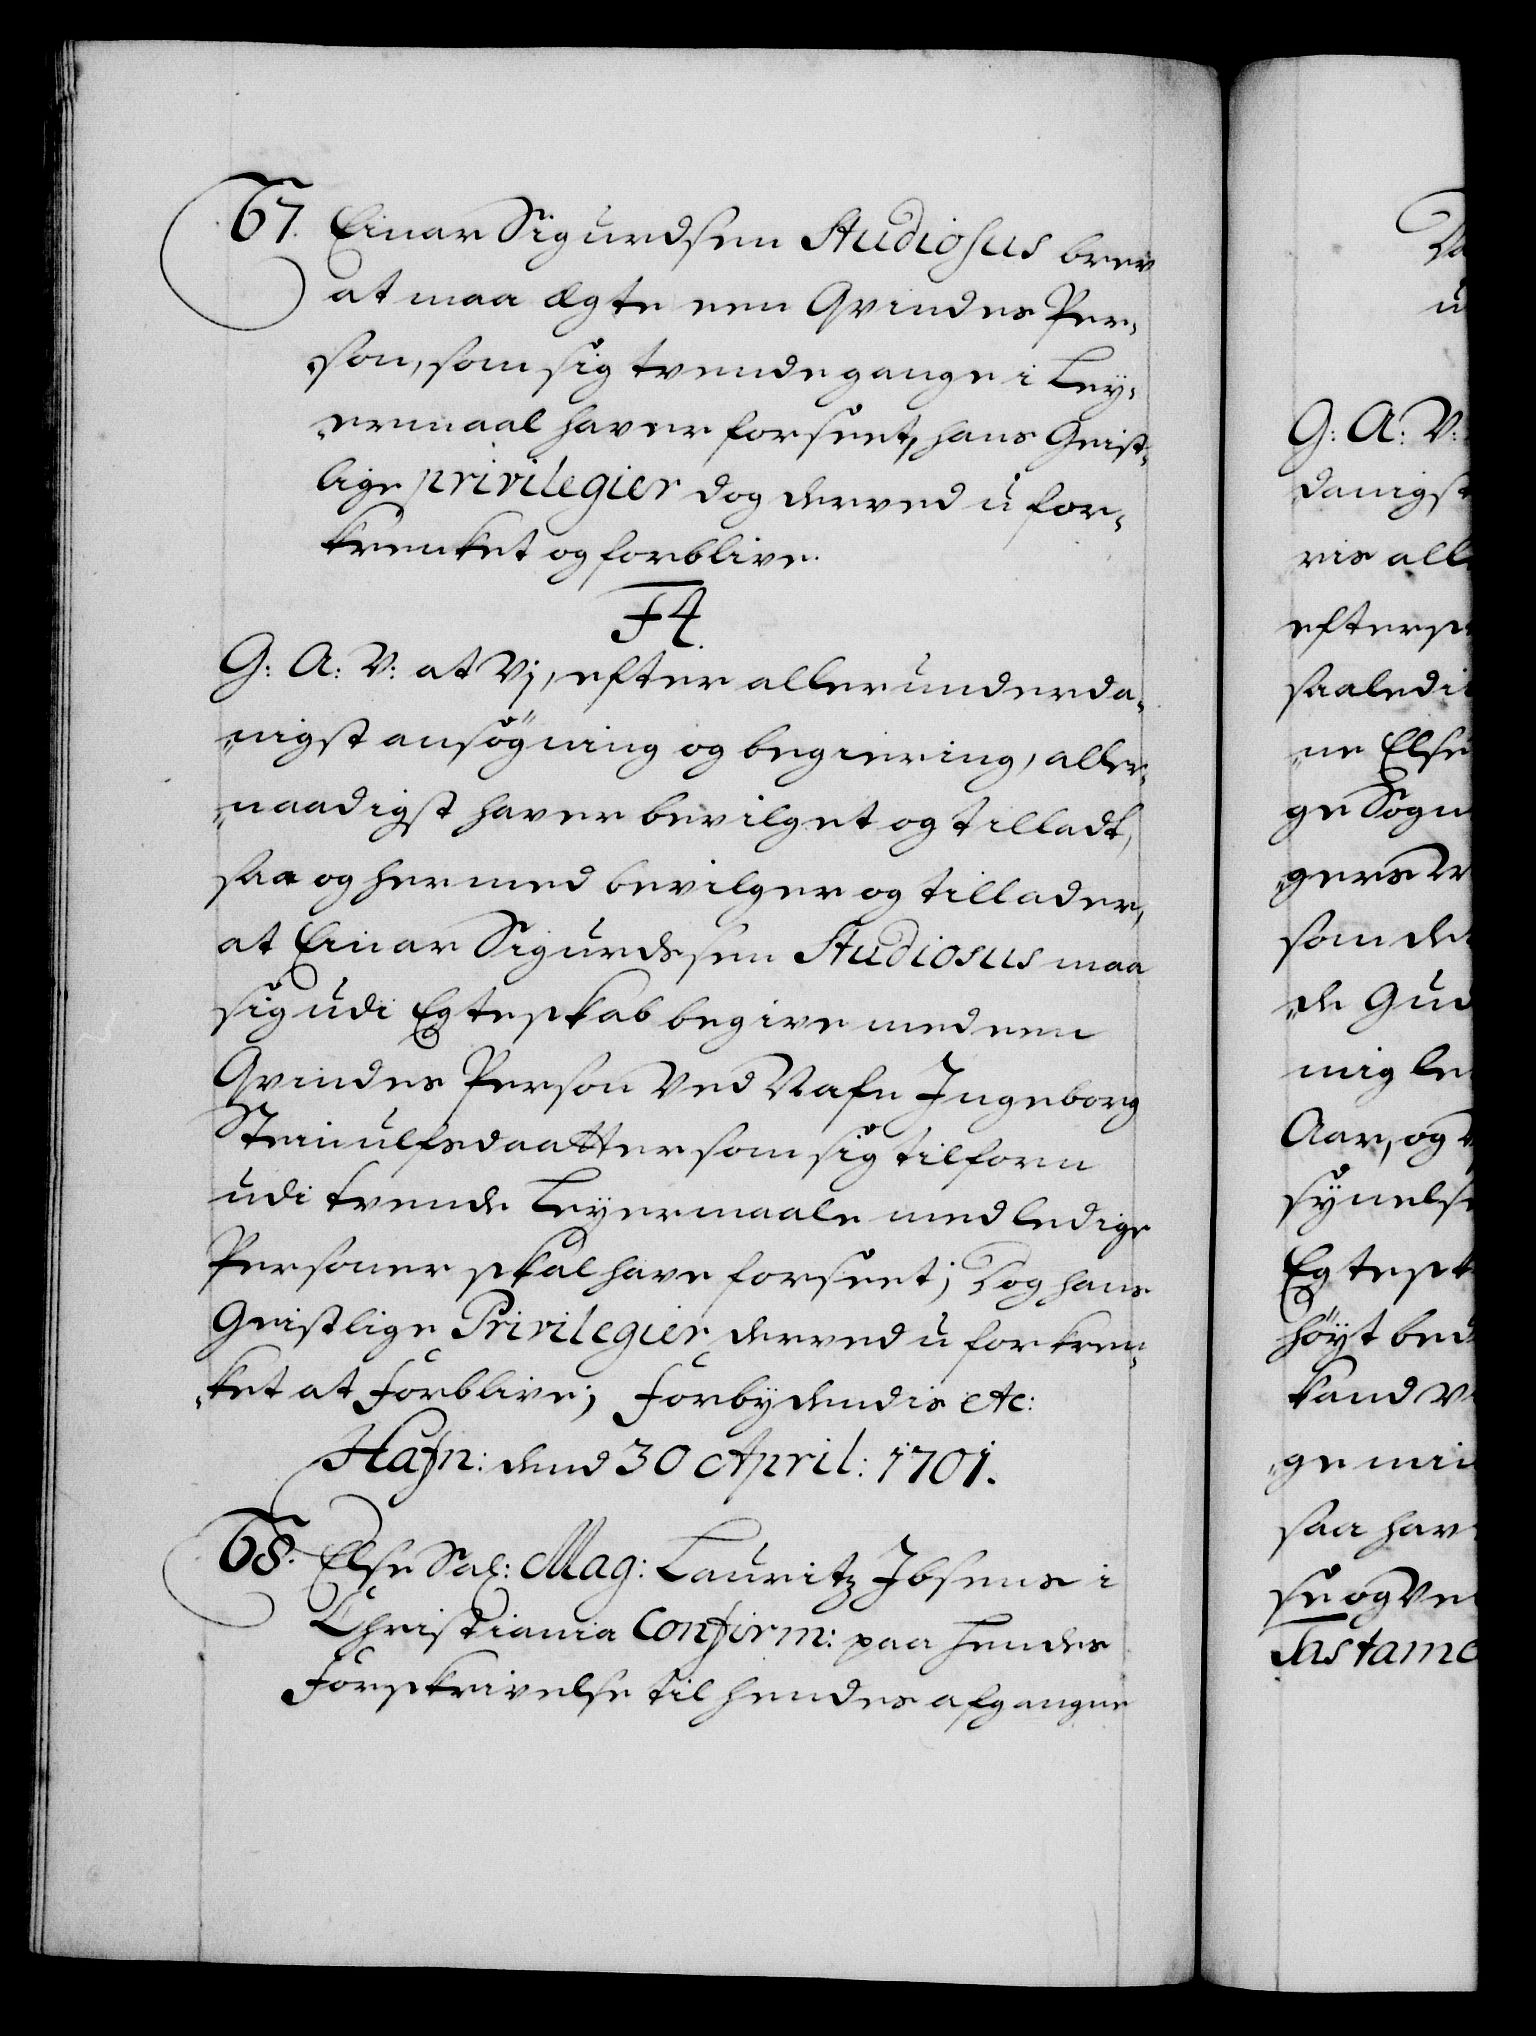 67. Einar Sigurdsen Studiosus brev
at maa ægte een Qvindes Per¬
son, som sig tvende gange i Ley¬
ermaal haver forseet, hans Geist¬
lige privilegier dog derved u for¬
krenket og forblive.
F4.
G: A: V: at Vj, efter allerunderda¬
nigst ansögning og begiering, aller¬
naadigst haver bevilget og tilladt,
saa og hermed bevilger og tillader,
at Einar Sigurdssen Studiosus maa
sig udi Egteskab begive med een
Qvindes Person Ved Nafn Ingeborg
Steinulfsdaatter som sig tilforn
udi tvende Leyermaale med ledige
Personer skal have forseet; Dog hans
Geistlige Privilegier derved u forkren¬
ket at forblive; Forbydendis etc:
Hafn: dend 30 April: 1701.
68. Else Sal: Mag: Lauritz Ibsens i
Christiania Confirm: paa hendes
Forskrivelse til hendes afgangne
u
G: A: V:
danigst
vis all
eftersk
saaledi
ne Else
ge Sogn
gers
som de
de Gud
mig le
Aar, og
synelse
Egtesk
höyt bed
kand v
ge min
saa hav
se og Ve
Testame